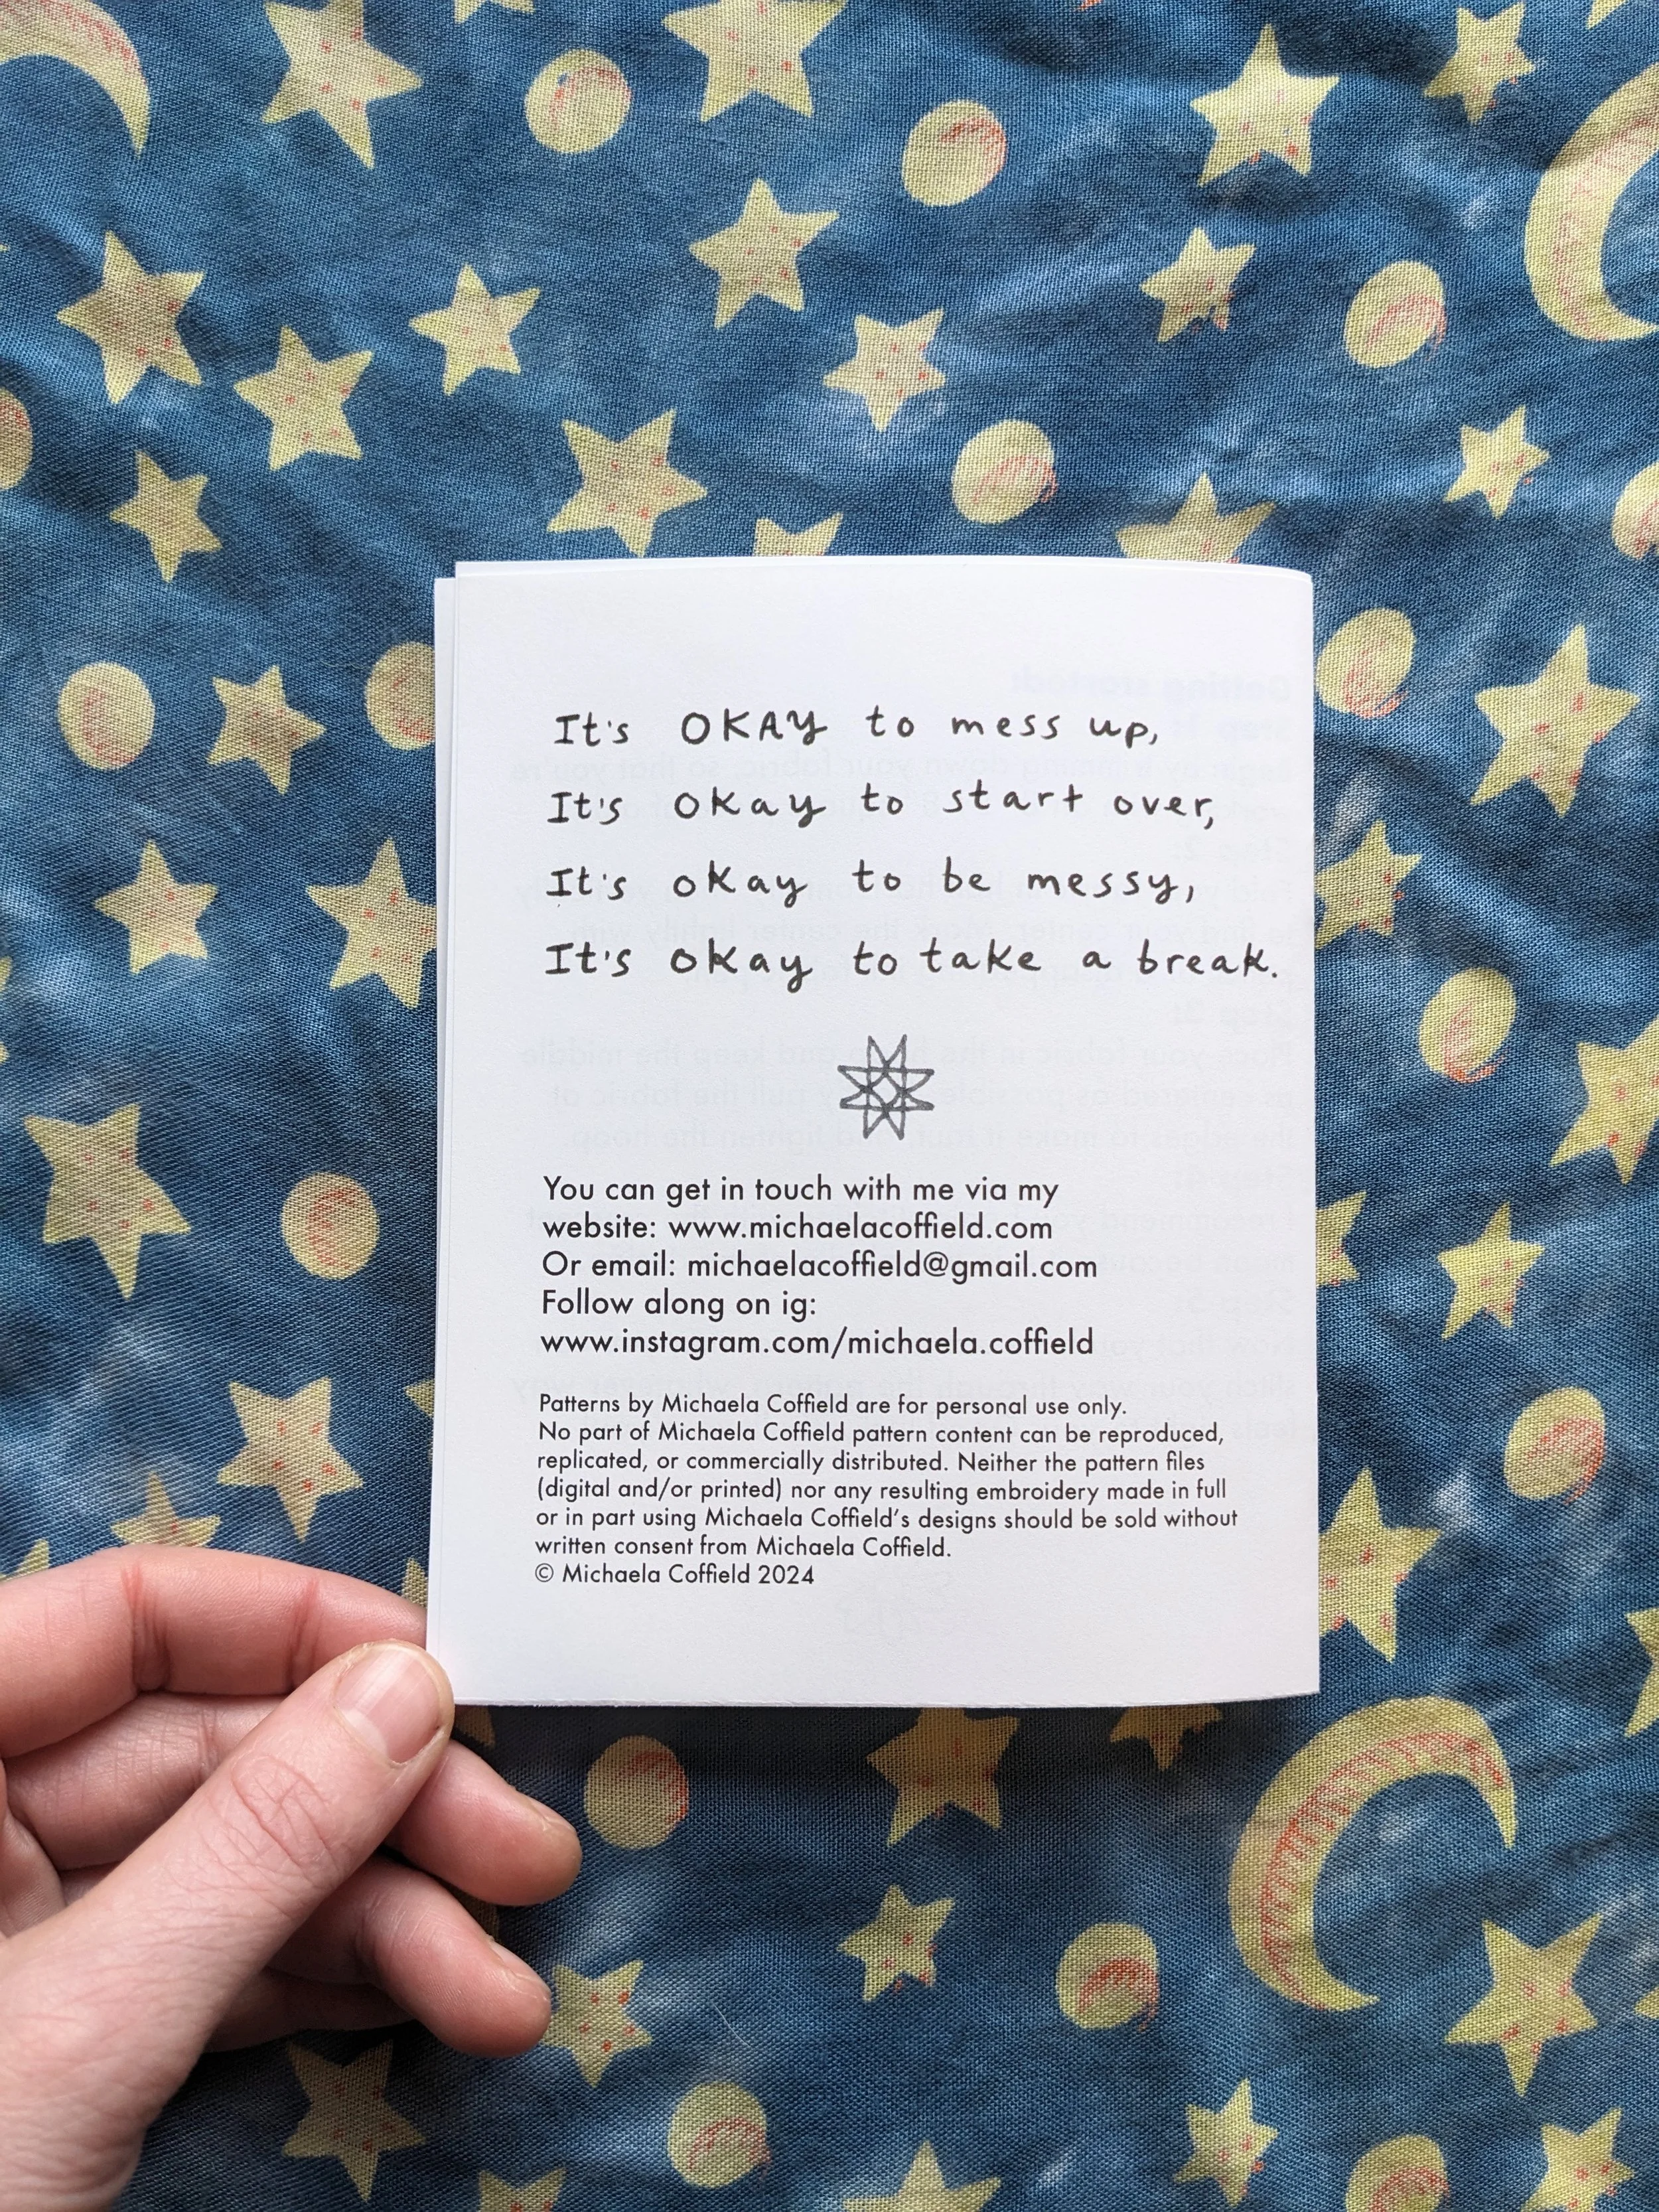 It's OKAY to mess up,
It's okay to start over,
It's okay to be messy,
It's okay to take a break.
You can get in touch with me via my
website: www.michaelacoffield.com
Or email: michaelacoffield@gmail.com
Follow along on ig:
www.instagram.com/michaela.coffield
Patterns by Michaela Coffield are for personal use only.
No part of Michaela Coffield pattern content can be reproduced,
replicated, or commercially distributed. Neither the pattern files
(digital and/or printed) nor any resulting embroidery made in full
or in part using Michaela Coffield's designs should be sold without
written consent from Michaela Coffield.
© Michaela Coffield 2024